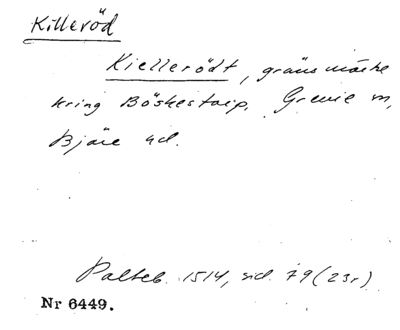 Killeröd
Kiellerödt, gränsmärke
kring Böskestorp, Grevie sn,
Bjäre hd.
Palteb. 1514, sid. 79 (23r)
Nr 6449.